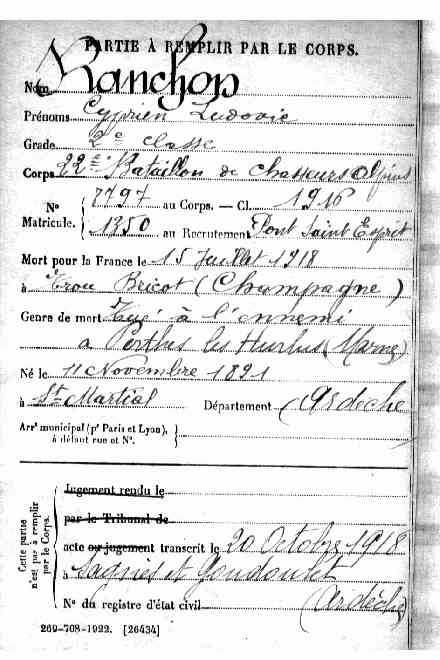 PARTIE À REMPLIR PAR LE CORPS.
Nom Ranchon
Prénoms Cyprien Ludovic
Grade 2e classe
Corps 22e Bataillon de Chasseurs Alpins
N° Matricule. { 7797 au Corps. — Cl. 1916
1350 au Recrutement Pont Saint Esprit
Mort pour la France le 15 Juillet 1918
à Trou Bricot (Champagne)
Genre de mort Tué à l'ennemi
à Perthes les Hurlus (Marne)
Né le 11 Novembre 1891
à St Martial Département (Ardèche
Arrt municipal (pr Paris et Lyon), à défaut rue et N°. }
Cette partie n'est pas à remplir par le Corps.
Jugement rendu le
par le Tribunal de
acte ou jugement transcrit le 20 Octobre 1918
à Sagnes et Goudoulet
(Ardèche)
N° du registre d'état civil
269-708-1922. [26434]